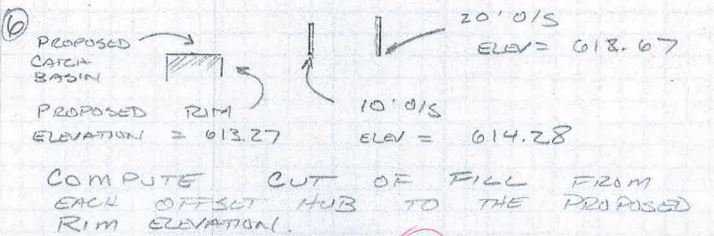 6
PROPOSED
CATCH
BASIN
20' O/S
ELEV = 618.67
PROPOSED RIM
ELEVATION = 613.27
10' O/S
ELEV = 614.28
COMPUTE CUT OF FILL FROM
EACH OFFSET HUB TO THE PROPOSED
RIM ELEVATION.